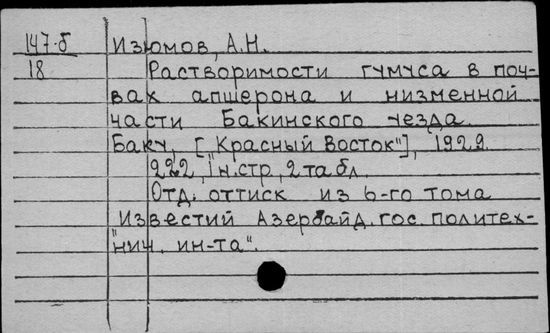 147-б Изюмов, А.Н.
18 Растворимости гумуса в поч-
вах апшерона и низменной
части Бакинского уезда.
Баку, ["Красный Восток"], 1929.
222, 1 н.стр, 2 табл.
Отд. оттиск из 6-го тома
"Известий Азербайд. гос. политех-
нич. ин-та".